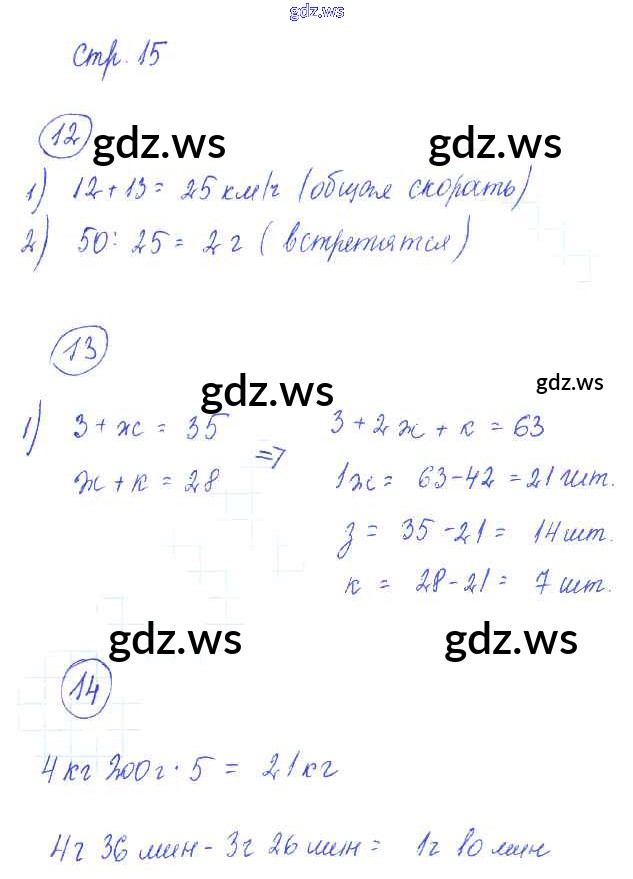 gdz.ws
стр. 15
12 gdz.ws gdz.ws
1) 12+13= 25 км/ч (общая скорать)
2) 50: 25= 2 г (встретятся)
13
gdz.ws gdz.ws
1) З + ж = 35 => З + 2ж + к = 63
ж + к = 28 1ж = 63-42 = 21 шт.
з = 35 -21 = 14 шт.
к = 28-21 = 7 шт.
gdz.ws gdz.ws
14
4 кг 200 г · 5 = 21 кг
4г 36 мин - 3г 26 мин = 1г 10 мин